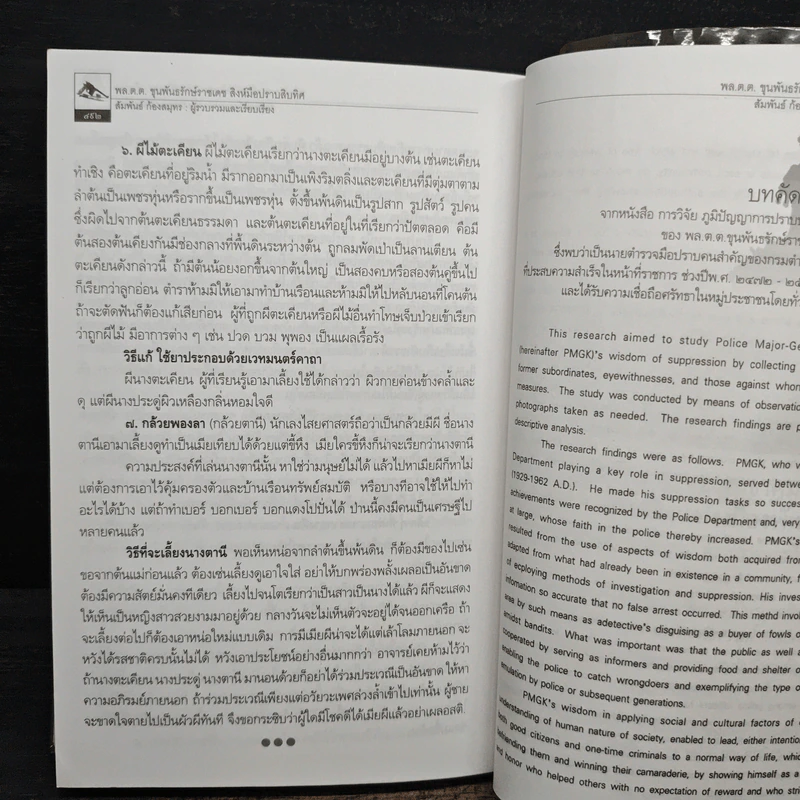 พล.ต.ต. ขุนพันธรักษ์ราชเดช สิงห์มือปราบสิบทิศ
สัมพันธ์ ก้องสมุทร : ผู้รวบรวมและเรียบเรียง
๔๙๒
๖. ผีไม้ตะเคียน ผีไม้ตะเคียนเรียกว่านางตะเคียนมีอยู่บางต้น เช่นตะเคียน
ทำเชิง คือตะเคียนที่อยู่ริมน้ำ มีรากออกมาเป็นเพิงริมตลิ่งและตะเคียนที่มีตุ่มตาตาม
ลำต้นเป็นเพชรหุ่นหรือรากขึ้นเป็นเพชรหุ่น ตั้งขึ้นพ้นดินเป็นรูปสาก รูปสัตว์ รูปคน
ซึ่งผิดไปจากต้นตะเคียนธรรมดา และต้นตะเคียนที่อยู่ในที่เรียกว่าปัตตลอด คือมี
ต้นสองต้นเคียงกันมีช่องกลางที่พื้นดินระหว่างต้น ถูกลมพัดเป่าเป็นลานเตียน ต้น
ตะเคียนดังกล่าวนี้ ถ้ามีต้นน้อยงอกขึ้นจากต้นใหญ่ เป็นสองคบหรือสองต้นคู่ขึ้นไป
ก็เรียกว่าลูกอ่อน ตำราห้ามมิให้เอามาทำบ้านเรือนและห้ามมิให้ไปหลับนอนที่โคนต้น
ถ้าจะตัดฟันก็ต้องแก้เสียก่อน ผู้ที่ถูกผีตะเคียนหรือผีไม้อื่นทำโทษเจ็บป่วยเข้าเรียก
ว่าถูกผีไม้ มีอาการต่าง ๆ เช่น ปวด บวม พุพอง เป็นแผลเรื้อรัง
วิธีแก้ ใช้ยาประกอบด้วยเวทมนตร์คาถา
ผีนางตะเคียน ผู้ที่เรียนรู้เอามาเลี้ยงใช้ได้กล่าวว่า ผิวกายค่อนข้างคล้ำและ
ดุ แต่ผีนางประดู่ผิวเหลืองกลิ่นหอมใจดี
๗. กล้วยพองลา (กล้วยตานี) นักเลงไสยศาสตร์ถือว่าเป็นกล้วยมีผี ชื่อนาง
ตานีเอามาเลี้ยงดูทำเป็นเมียเทียบได้ด้วยแต่ขี้หึง เมียใครขี้หึงก็น่าจะเรียกว่านางตานี
ความประสงค์ที่เล่นนางตานีนั้น หาใช่ว่ามนุษย์ไม่ได้ แล้วไปหาเมียผีก็หาไม่
แต่ต้องการเอาไว้คุ้มครองตัวและบ้านเรือนทรัพย์สมบัติ หรือบางทีอาจใช้ให้ไปทำ
อะไรได้บ้าง แต่ถ้าทำเบอร์ บอกเบอร์ บอกแดงไปปั่นได้ ป่านนี้คงมีคนเป็นเศรษฐีไป
หลายคนแล้ว
วิธีที่จะเลี้ยงนางตานี พอเห็นหน่อจากลำต้นขึ้นพ้นดิน ก็ต้องมีของไปเซ่น
ขอจากต้นแม่ก่อนแล้ว ต้องเซ่นเลี้ยงดูเอาใจใส่ อย่าให้บกพร่องพลั้งเผลอเป็นอันขาด
ต้องมีความสัตย์มั่นคงทีเดียว เลี้ยงไปจนโตเรียกว่าเป็นสาวเป็นนางได้แล้ว ผีก็จะแสดง
ให้เห็นเป็นหญิงสาวสวยงามมาอยู่ด้วย กลางวันจะไม่เห็นตัวจะอยู่ได้จนออกเครือ ถ้า
จะเลี้ยงต่อไปก็ต้องเอาหน่อใหม่แบบเดิม การมีเมียผีน่าจะได้แต่เล้าโลมภายนอก จะ
หวังได้รสชาติครบนั้นไม่ได้ หวังเอาประโยชน์อย่างอื่นมากกว่า อาจารย์เคยห้ามไว้ว่า
ถ้านางตะเคียน นางประดู่ นางตานี มานอนด้วยก็อย่าได้ร่วมประเวณีเป็นอันขาด ให้หา
ความอภิรมย์ภายนอก ถ้าร่วมประเวณีเพียงแต่อวัยวะเพศล่วงล้ำเข้าไปเท่านั้น ผู้ชาย
จะขาดใจตายไปเป็นผัวผีทันที จึงขอกระซิบว่าผู้ใดมีโชคดีได้เมียผีแล้วอย่าเผลอสติ.
พล.ต.ต. ขุนพันธรัก
สัมพันธ์ ก้อง
บทคัด
จากหนังสือ การวิจัย ภูมิปัญญาการปราบ
ของ พล.ต.ต.ขุนพันธรักษ์รา
ซึ่งพบว่าเป็นนายตำรวจมือปราบคนสำคัญของกรมตำ
ที่ประสบความสำเร็จในหน้าที่ราชการ ช่วงปีพ.ศ. ๒๔๗๒ - ๒๕
และได้รับความเชื่อถือศรัทธาในหมู่ประชาชนโดยทั่
This research aimed to study Police Major-Ge
(hereinafter PMGK)'s wisdom of suppression by collecting
former subordinates, eyewitnesses, and those against whom
measures. The study was conducted by means of observation
photographs taken as needed. The research findings are p
descriptive analysis.
The research findings were as follows. PMGK, who w
Department playing a key role in suppression, served betwe
(1929-1962 A.D.). He made his suppression tasks so succes
achievements were recognized by the Police Department and, very
at large, whose faith in the police thereby increased. PMGK's
resulted from the use of aspects of wisdom both acquired from
adapted from what had already been in existence in a community, f
of ecploying methods of investigation and suppression. His inves
infomation so accurate that no false arrest occurred. This methd invol
area by such means as adetective's disguising as a buyer of fowls o
amidst bandits. What was important was that the public as well a
cooperated by serving as informers and providing food and shelter o
enabling the police to catch wrongdoers and exemplifying the type o
emulation by police or subsequent generations.
PMGK's wisdom in applying social and cultural factors of
understanding of human nature of society, enabled to lead, either intention
both good citizens and one-time criminals to a normal way of life, whic
befriending them and winning their camaraderie, by showing himself as a
and honor who helped others with no expectation of reward and who stric